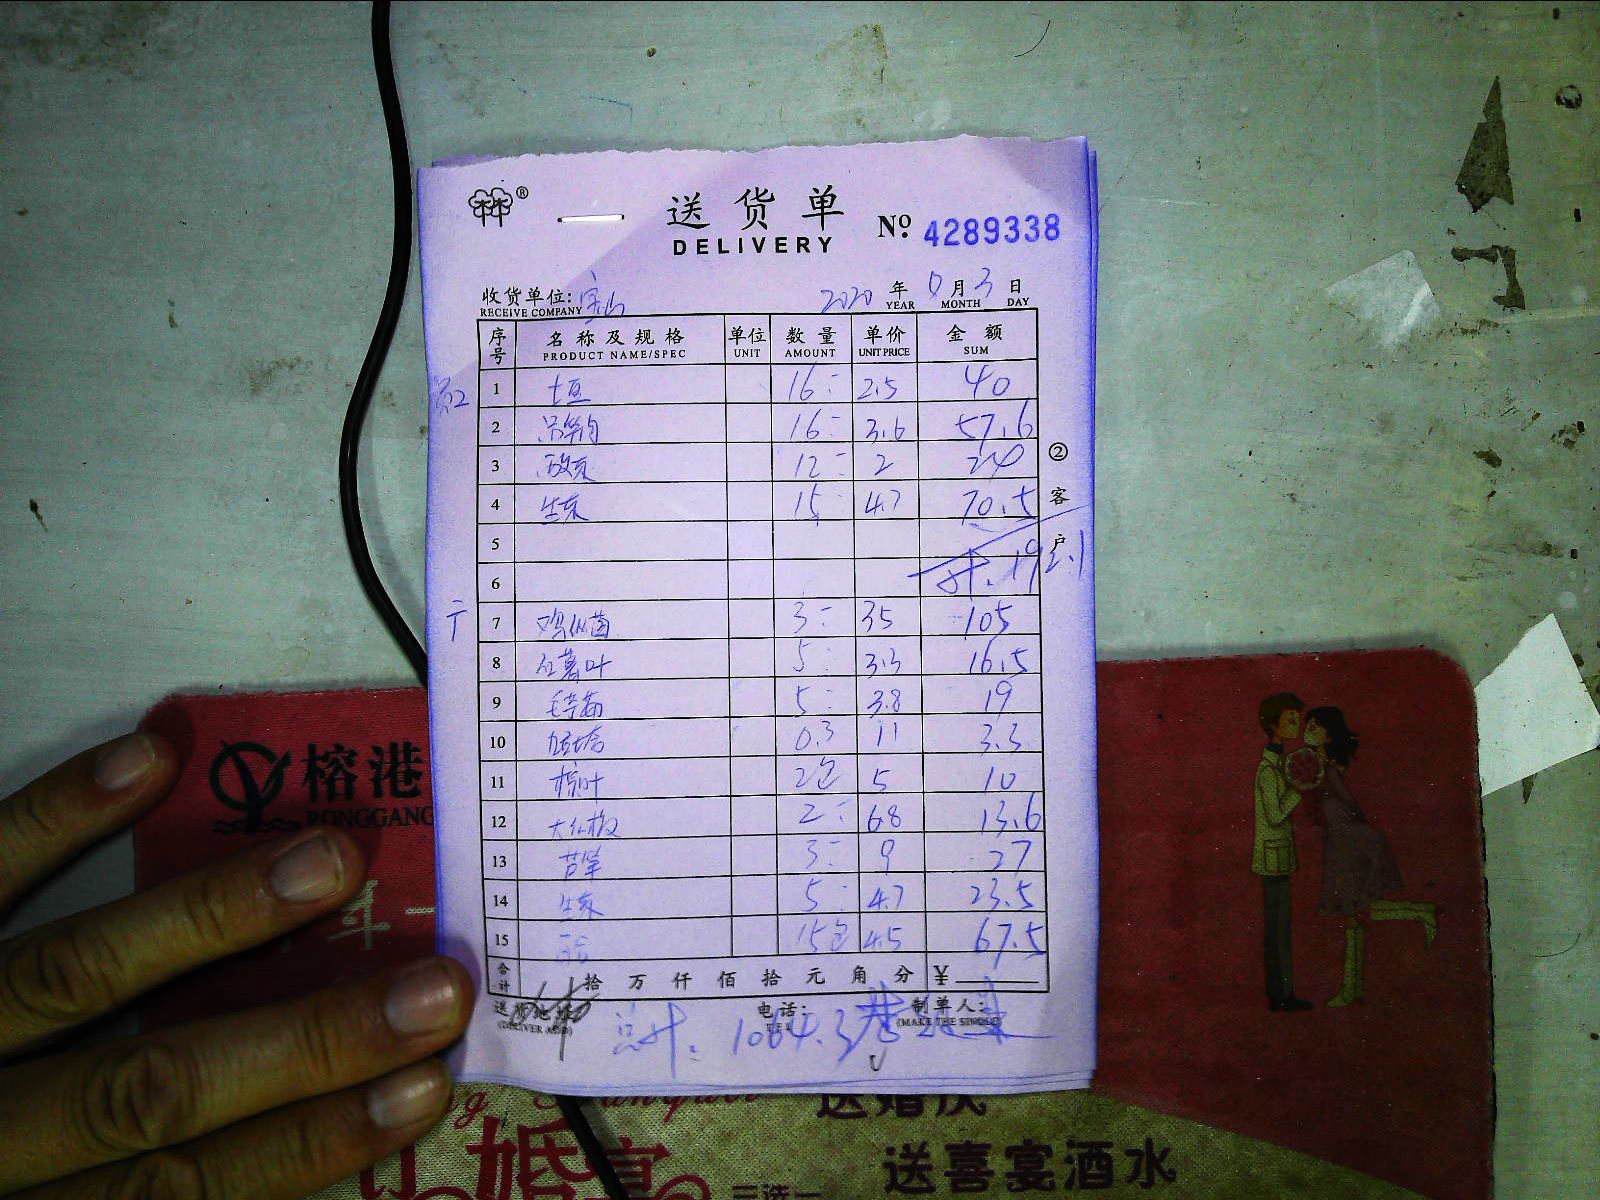 ®
送货单
DELIVERY
№ 4289338
收货单位:
RECEIVE COMPANY
2020 年 月 3 日
YEAR MONTH DAY
序号 名称及规格 单位 数量 单价 金额
PRODUCT NAME/SPEC UNIT AMOUNT UNIT PRICE SUM
1 土豆 16 2.5 40
2 16 3.6 57.6
3 12 2 24
4 生菜 15 4.7 70.5
5
6 计: 192.1
7 鸡纵菌 3 35 105
8 红薯叶 5 3.3 16.5
9 5 3.8 19
10 0.3 11 3.3
11 粽叶 2包 5 10
12 大红椒 2 6.8 13.6
13 芦笋 3 9 27
14 生菜 5 4.7 23.5
15 15包 4.5 67.5
合计 拾万仟佰拾元角分 ¥
送货地址
(DELIVER ADD)
电话:
TEL
制单人:
(MAKE THE SINGLE)
总计: 1064.3
②客户
榕港
RONGGANG
婚宴
送婚庆
送喜宴酒水
三选一